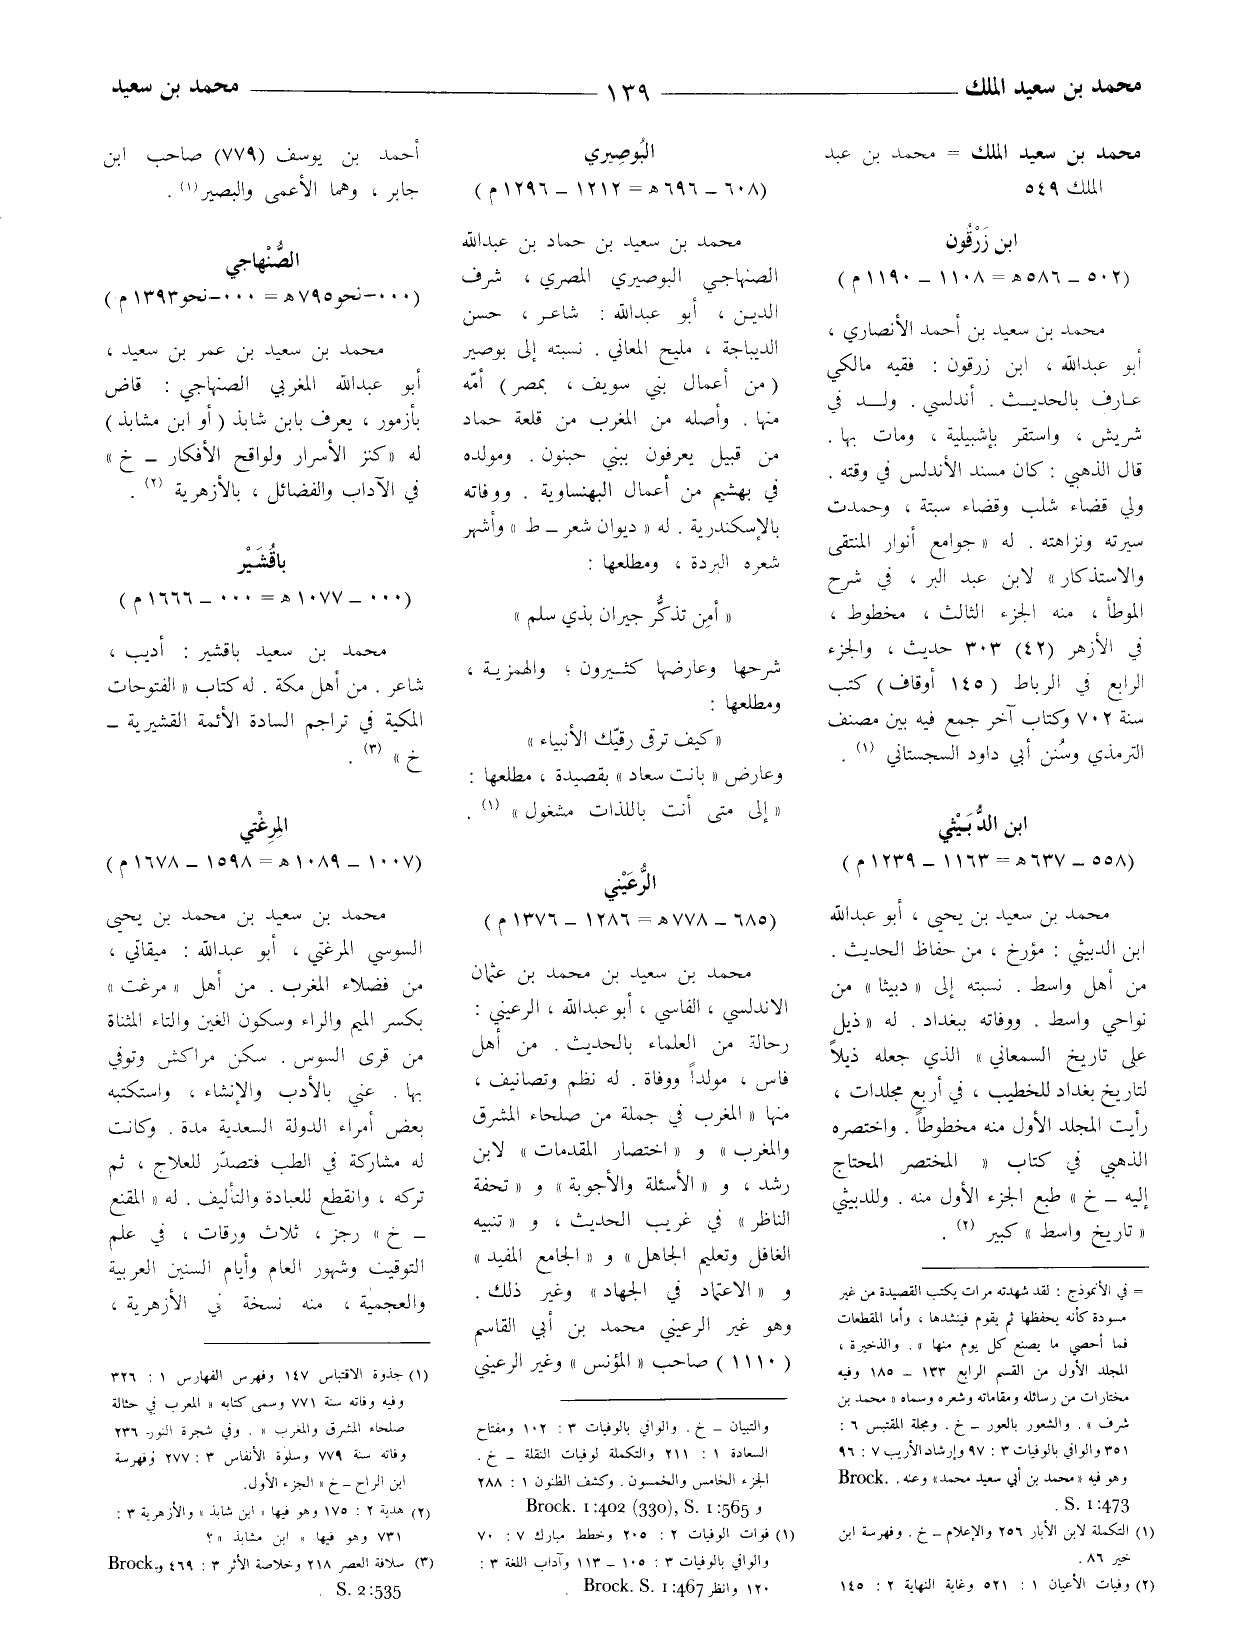 محمد بن سعيد الملك ١٣٩ محمد بن سعيد
محمد بن سعيد الملك = محمد بن عبد
الملك ٥٤٩
ابن زَرْقُون
(٥٠٢ ــ ٥٨٦ هـ = ١١٠٨ ــ ١١٩٠ م)
محمد بن سعيد بن أحمد الأنصاري ،
أبو عبدالله ، ابن زرقون : فقيه مالكي
عارف بالحديث . أندلسي . ولد في
شريش ، واستقر بإشبيلية ، ومات بها .
قال الذهبي : كان مسند الأندلس في وقته .
ولي قضاء شلب وقضاء سبتة ، وحمدت
سيرته ونزاهته . له «جوامع أنوار المنتقى
والاستذكار» لابن عبد البر ، في شرح
الموطأ ، منه الجزء الثالث ، مخطوط ،
في الأزهر (٤٢) ٣٠٣ حديث ، والجزء
الرابع في الرباط (١٤٥ أوقاف) كتب
سنة ٧٠٢ وكتاب آخر جمع فيه بين مصنف
الترمذي وسُنن أبي داود السجستاني (١) .
ابن الدُّبَيْثي
(٥٥٨ ــ ٦٣٧ هـ = ١١٦٣ ــ ١٢٣٩ م)
محمد بن سعيد بن يحيى ، أبو عبدالله
ابن الدبيثي : مؤرخ ، من حفاظ الحديث .
من أهل واسط . نسبته إلى «دبيثا» من
نواحي واسط . ووفاته ببغداد . له «ذيل
على تاريخ السمعاني» الذي جعله ذيلاً
لتاريخ بغداد للخطيب ، في أربع مجلدات ،
رأيت المجلد الأول منه مخطوطاً . واختصره
الذهبي في كتاب « المختصر المحتاج
إليه ــ خ » طبع الجزء الأول منه . وللدبيثي
«تاريخ واسط» كبير (٢) .
= في الأنموذج : لقد شهدته مرات يكتب القصيدة من غير
مسودة كأنه يحفظها ثم يقوم فينشدها ، وأما المقطعات
فما أحصي ما يصنع كل يوم منها » . والذخيرة ،
المجلد الأول من القسم الرابع ١٣٣ ــ ١٨٥ وفيه
مختارات من رسائله ومقاماته وشعره وسماه «محمد بن
شرف» . والشعور بالعور ــ خ . ومجلة المقتبس ٦ :
٣٥١ والوافي بالوفيات ٣ : ٩٧ وإرشاد الأريب ٧ : ٩٦
وهو فيه «محمد بن أبي سعيد محمد» وعنه . Brock.
S. 1:473 .
(١) التكملة لابن الأبار ٢٥٦ والإعلام ــ خ . وفهرسة ابن
خير ٨٦ .
(٢) وفيات الأعيان ١ : ٥٢١ وغاية النهاية ٢ : ١٤٥
البُوصِيري
(٦٠٨ ــ ٦٩٦ هـ = ١٢١٢ ــ ١٢٩٦ م)
محمد بن سعيد بن حماد بن عبدالله
الصنهاجي البوصيري المصري ، شرف
الدين ، أبو عبدالله : شاعر ، حسن
الديباجة ، مليح المعاني . نسبته إلى بوصير
(من أعمال بني سويف ، بمصر) أمّه
منها . وأصله من المغرب من قلعة حماد
من قبيل يعرفون ببني حبنون . ومولده
في بهشيم من أعمال البهنساوية . ووفاته
بالإسكندرية . له «ديوان شعر ــ ط» وأشهر
شعره البردة ، ومطلعها :
« أمِن تذكُّر جيران بذي سلم »
شرحها وعارضها كثيرون ؛ والهمزية ،
ومطلعها :
«كيف ترقى رقيّك الأنبياء»
وعارض «بانت سعاد» بقصيدة ، مطلعها :
«إلى متى أنت باللذات مشغول» (١) .
الرُّعَيْني
(٦٨٥ ــ ٧٧٨ هـ = ١٢٨٦ ــ ١٣٧٦ م)
محمد بن سعيد بن محمد بن عثمان
الاندلسي ، الفاسي ، أبو عبدالله ، الرعيني :
رحالة من العلماء بالحديث . من أهل
فاس ، مولداً ووفاة . له نظم وتصانيف ،
منها «المغرب في جملة من صلحاء المشرق
والمغرب» و «اختصار المقدمات» لابن
رشد ، و «الأسئلة والأجوبة» و «تحفة
الناظر» في غريب الحديث ، و «تنبيه
الغافل وتعليم الجاهل» و «الجامع المفيد»
و «الاعتماد في الجهاد» وغير ذلك .
وهو غير الرعيني محمد بن أبي القاسم
(١١١٠) صاحب «المؤنس» وغير الرعيني
والتبيان ــ خ . والوافي بالوفيات ٣ : ١٠٢ ومفتاح
السعادة ١ : ٢١١ والتكملة لوفيات النقلة ــ خ .
الجزء الخامس والخمسون . وكشف الظنون ١ : ٢٨٨
و Brock. 1:402 (330), S. 1:565
(١) فوات الوفيات ٢ : ٢٠٥ وخطط مبارك ٧ : ٧٠
والوافي بالوفيات ٣ : ١٠٥ ــ ١١٣ وآداب اللغة ٣ :
١٢٠ وانظر Brock. S. 1:467 .
أحمد بن يوسف (٧٧٩) صاحب ابن
جابر ، وهما الأعمى والبصير (١) .
الصُّنْهاجي
(٠٠٠ــ نحو ٧٩٥ هـ = ٠٠٠ــ نحو ١٣٩٣ م)
محمد بن سعيد بن عمر بن سعيد ،
أبو عبدالله المغربي الصنهاجي : قاض
بأزمور ، يعرف بابن شابذ (أو ابن مشابذ)
له «كنز الأسرار ولواقح الأفكار ــ خ»
في الآداب والفضائل ، بالأزهرية (٢) .
باقُشَيْر
(٠٠٠ ــ ١٠٧٧ هـ = ٠٠٠ ــ ١٦٦٦ م)
محمد بن سعيد باقشير : أديب ،
شاعر . من أهل مكة . له كتاب «الفتوحات
المكية في تراجم السادة الأئمة القشيرية ــ
خ» (٣) .
المِرِغْتي
(١٠٠٧ ــ ١٠٨٩ هـ = ١٥٩٨ ــ ١٦٧٨ م)
محمد بن سعيد بن محمد بن يحيى
السوسي المرغتي ، أبو عبدالله : ميقاتي ،
من فضلاء المغرب . من أهل «مرغت»
بكسر الميم والراء وسكون الغين والتاء المثناة
من قرى السوس . سكن مراكش وتوفي
بها . عني بالأدب والإنشاء ، واستكتبه
بعض أمراء الدولة السعدية مدة . وكانت
له مشاركة في الطب فتصدّر للعلاج ، ثم
تركه ، وانقطع للعبادة والتأليف . له «المقنع
ــ خ» رجز ، ثلاث ورقات ، في علم
التوقيت وشهور العام وأيام السنين العربية
والعجمية ، منه نسخة في الأزهرية ،
(١) جذوة الاقتباس ١٤٧ وفهرس الفهارس ١ : ٣٢٦
وفيه وفاته سنة ٧٧١ وسمى كتابه «المعرب في حثالة
صلحاء المشرق والمغرب» . وفي شجرة النور ٢٣٦
وفاته سنة ٧٧٩ وسلوة الأنفاس ٣ : ٢٧٧ وفهرسة
ابن الراح ــ خ «الجزء الأول .
(٢) هدية ٢ : ١٧٥ وهو فيها «ابن شابذ» والأزهرية ٣ :
٧٣١ وهو فيها « ابن مشابذ » ؟
(٣) سلافة العصر ٢١٨ وخلاصة الأثر ٣ : ٤٦٩ و Brock.
S. 2:535 .